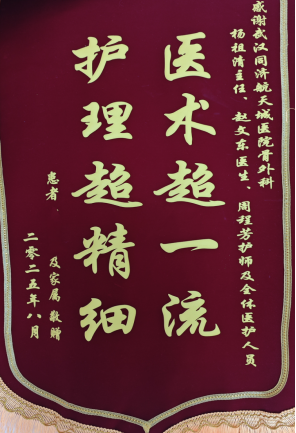 感谢武汉同济航天城医院骨外科
杨祖清主任、赵文东医生、周程芳护师及全体医护人员
医术超一流
护理超精细
患者
及家属 敬赠
二零二五年八月